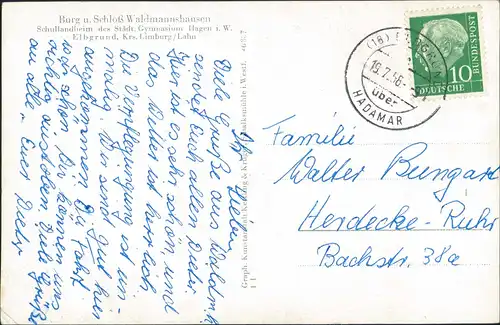 Burg u. Schloß Waldmannshausen
Schullandheim des Städt. Gymnasium Hagen i. W.
Elbgrund, Krs. Limburg/Lahn
Ihr Lieben,
Viele Grüße aus Waldmh.
sendet Euch allen Dieter.
Hier ist es sehr schön, und
das Wetter ist herrlich.
Die Verpflegung ist un-
mäßig. Wir sind gut hier
angekommen. Die Fahrt
war schön. Wir können uns
richtig austoben. Viele Grüße
an alle. Euer Dieter
Graph. Kunstanstalt
i. Westf.
(16)
19.7.56
über
HADAMAR
10
DEUTSCHE
BUNDESPOST
Familie
Walter Bungart
Herdecke-Ruhr
Bachstr. 38a